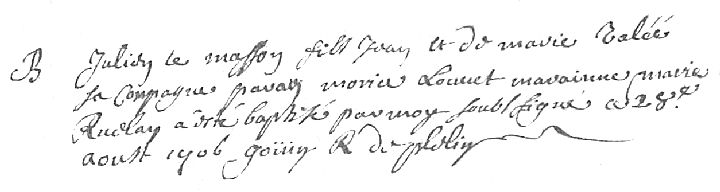 B Julien le masson fils Jean et de marie Valéé
sa Compagne parain morice Louuet maraine marie
Ruelan a été baptisé par moy soubs signé ce 28e
aoust 1706 R de plelin